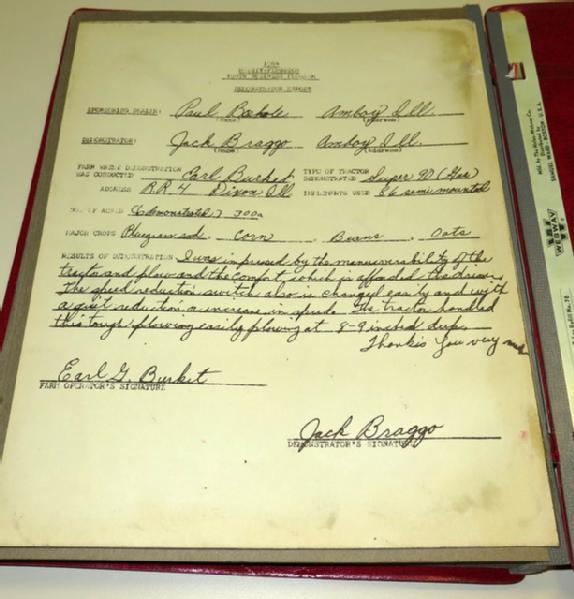 DEMONSTRATOR REPORT
SPONSORING DEALER: Paul Amboy Ill.
(Name) (Address)
DEMONSTRATOR: Jack Braggo Amboy Ill.
(Name) (Address)
FARM WHERE DEMONSTRATION TYPE OF TRACTOR
WAS CONDUCTED Earl Burket DEMONSTRATED Super 90 (Gas)
ADDRESS R.R. 4 Dixon Ill IMPLEMENTS USED 86 semi mounted
NO. OF ACRES (demonstrated) 300a
MAJOR CROPS Bluegrass sod, Corn, Beans, Oats
RESULTS OF DEMONSTRATION I was impressed by the maneuverability of the
tractor and plow and the comfort which is afforded the driver.
The speed reduction switch also is changed easily and with
a quiet reduction or increase in speeds. The tractor handled
this tough plowing easily plowing at 8-9 inches deep.
Thanks You very
Earl G Burket
FARM OPERATOR'S SIGNATURE
Jack Braggo
DEMONSTRATOR'S SIGNATURE
WEBWAY